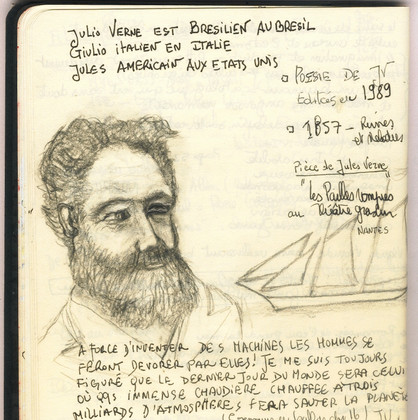 Julio VERNE EST BRESILIEN AU BRESIL
GIULIO ITALIEN EN ITALIE
JULES AMERICAIN AUX ETATS UNIS
POESIE DE JV
Editées en 1989
1857 - Ruines
et
Pièce de Jules Verne
"Les Pailles rompues
au Théâtre
NANTES
A FORCE D'INVENTER DES MACHINES LES HOMMES SE
FERONT DEVORER PAR ELLES! JE ME SUIS TOUJOURS
FIGURÉ QUE LE DERNIER JOUR DU MONDE SERA CELUI
OÙ QQS IMMENSE CHAUDIERE CHAUFFEE A TROIS
MILLIARDS D'ATMOSPHERES FERA SAUTER LA PLANÈTE